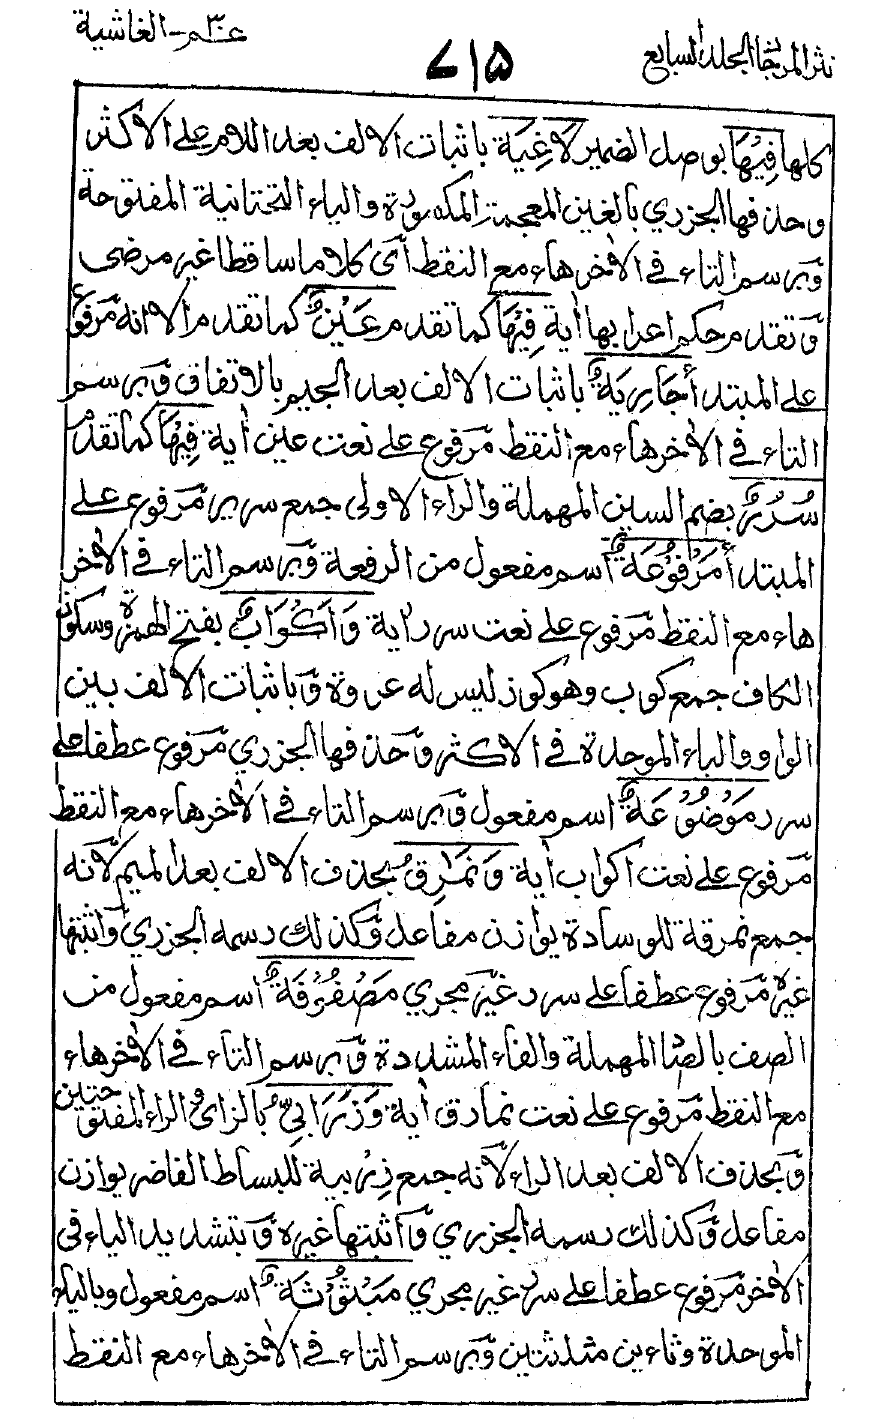 نثر المرجان المجلد السابع
٧١٥
عم ٣٠ - الغاشية
كلها فِيْهَا بوصل الضمير لَاغِيَة باثبات الالف بعد اللام على الاكثر
وحذفها الجزري بالغين المعجمة المكسورة والياء التحتانية المفتوحة
وَبرسم التاء فى الاٰخرهاء مع النقط اَى كلاما ساقطا غير مرضى
وَتقدم حكم اعرابها اٰية فِيْهَا كما تقدم عَيْنٌ كما تقدم الا انه مَرفوع
على المبتدأ جَارِيَةٌ باثبات الالف بعد الجيم بالاتفاق وَبرسم
التاء فى الاٰخرهاء مع النقط مَرفوع على نعت عين اٰية فِيْهَا كما تقدم
سُرُرٌ بضم السين المهملة والراء الاولى جمع سرير مَرفوع على
المبتدأ مَرْفُوْعَةٌ اسم مفعول من الرفعة وَبرسم التاء فى الاٰخر
هاء مع النقط مَرفوع على نعت سرر اٰية وَاَكْوَابٌ بفتح الهمزة وسكون
الكاف جمع كوب وهو كوز ليس له عروة وَباثبات الالف بين
الواو والباء الموحدة فى الاكثر وَحذفها الجزري مَرفوع عطفا على
سرر مَوْضُوْعَةٌ اسم مفعول وَبرسم التاء فى الاٰخرهاء مع النقط
مَرفوع على نعت اكواب اٰية وَنَمٰرِقُ بحذف الالف بعد الميم لانه
جمع نمرقة للوسادة يوازن مفاعل وَكذلك رسمه الجزري وَاثبتها
غيره مَرفوع عطفا على سرر غير مجري مَصْفُوْفَةٌ اسم مفعول من
الصف بالصاد المهملة والفاء المشددة وَبرسم التاء فى الاٰخرهاء
مع النقط مَرفوع على نعت نمارق اٰية وَزَرَابِيُّ بالزاى والراء المفتوحتين
وَبحذف الالف بعد الراء لانه جمع زِرْبية للبساط الفاخر يوازن
مفاعل وَكذلك رسمه الجزري وَاثبتها غيره وَبتشديد الياء فى
الاٰخر مَرفوع عطفا على سرر غير مجري مَبْثُوْثَةٌ اسم مفعول وبالباء
الموحدة وثاءين مثلثتين وَبرسم التاء فى الاٰخرهاء مع النقط